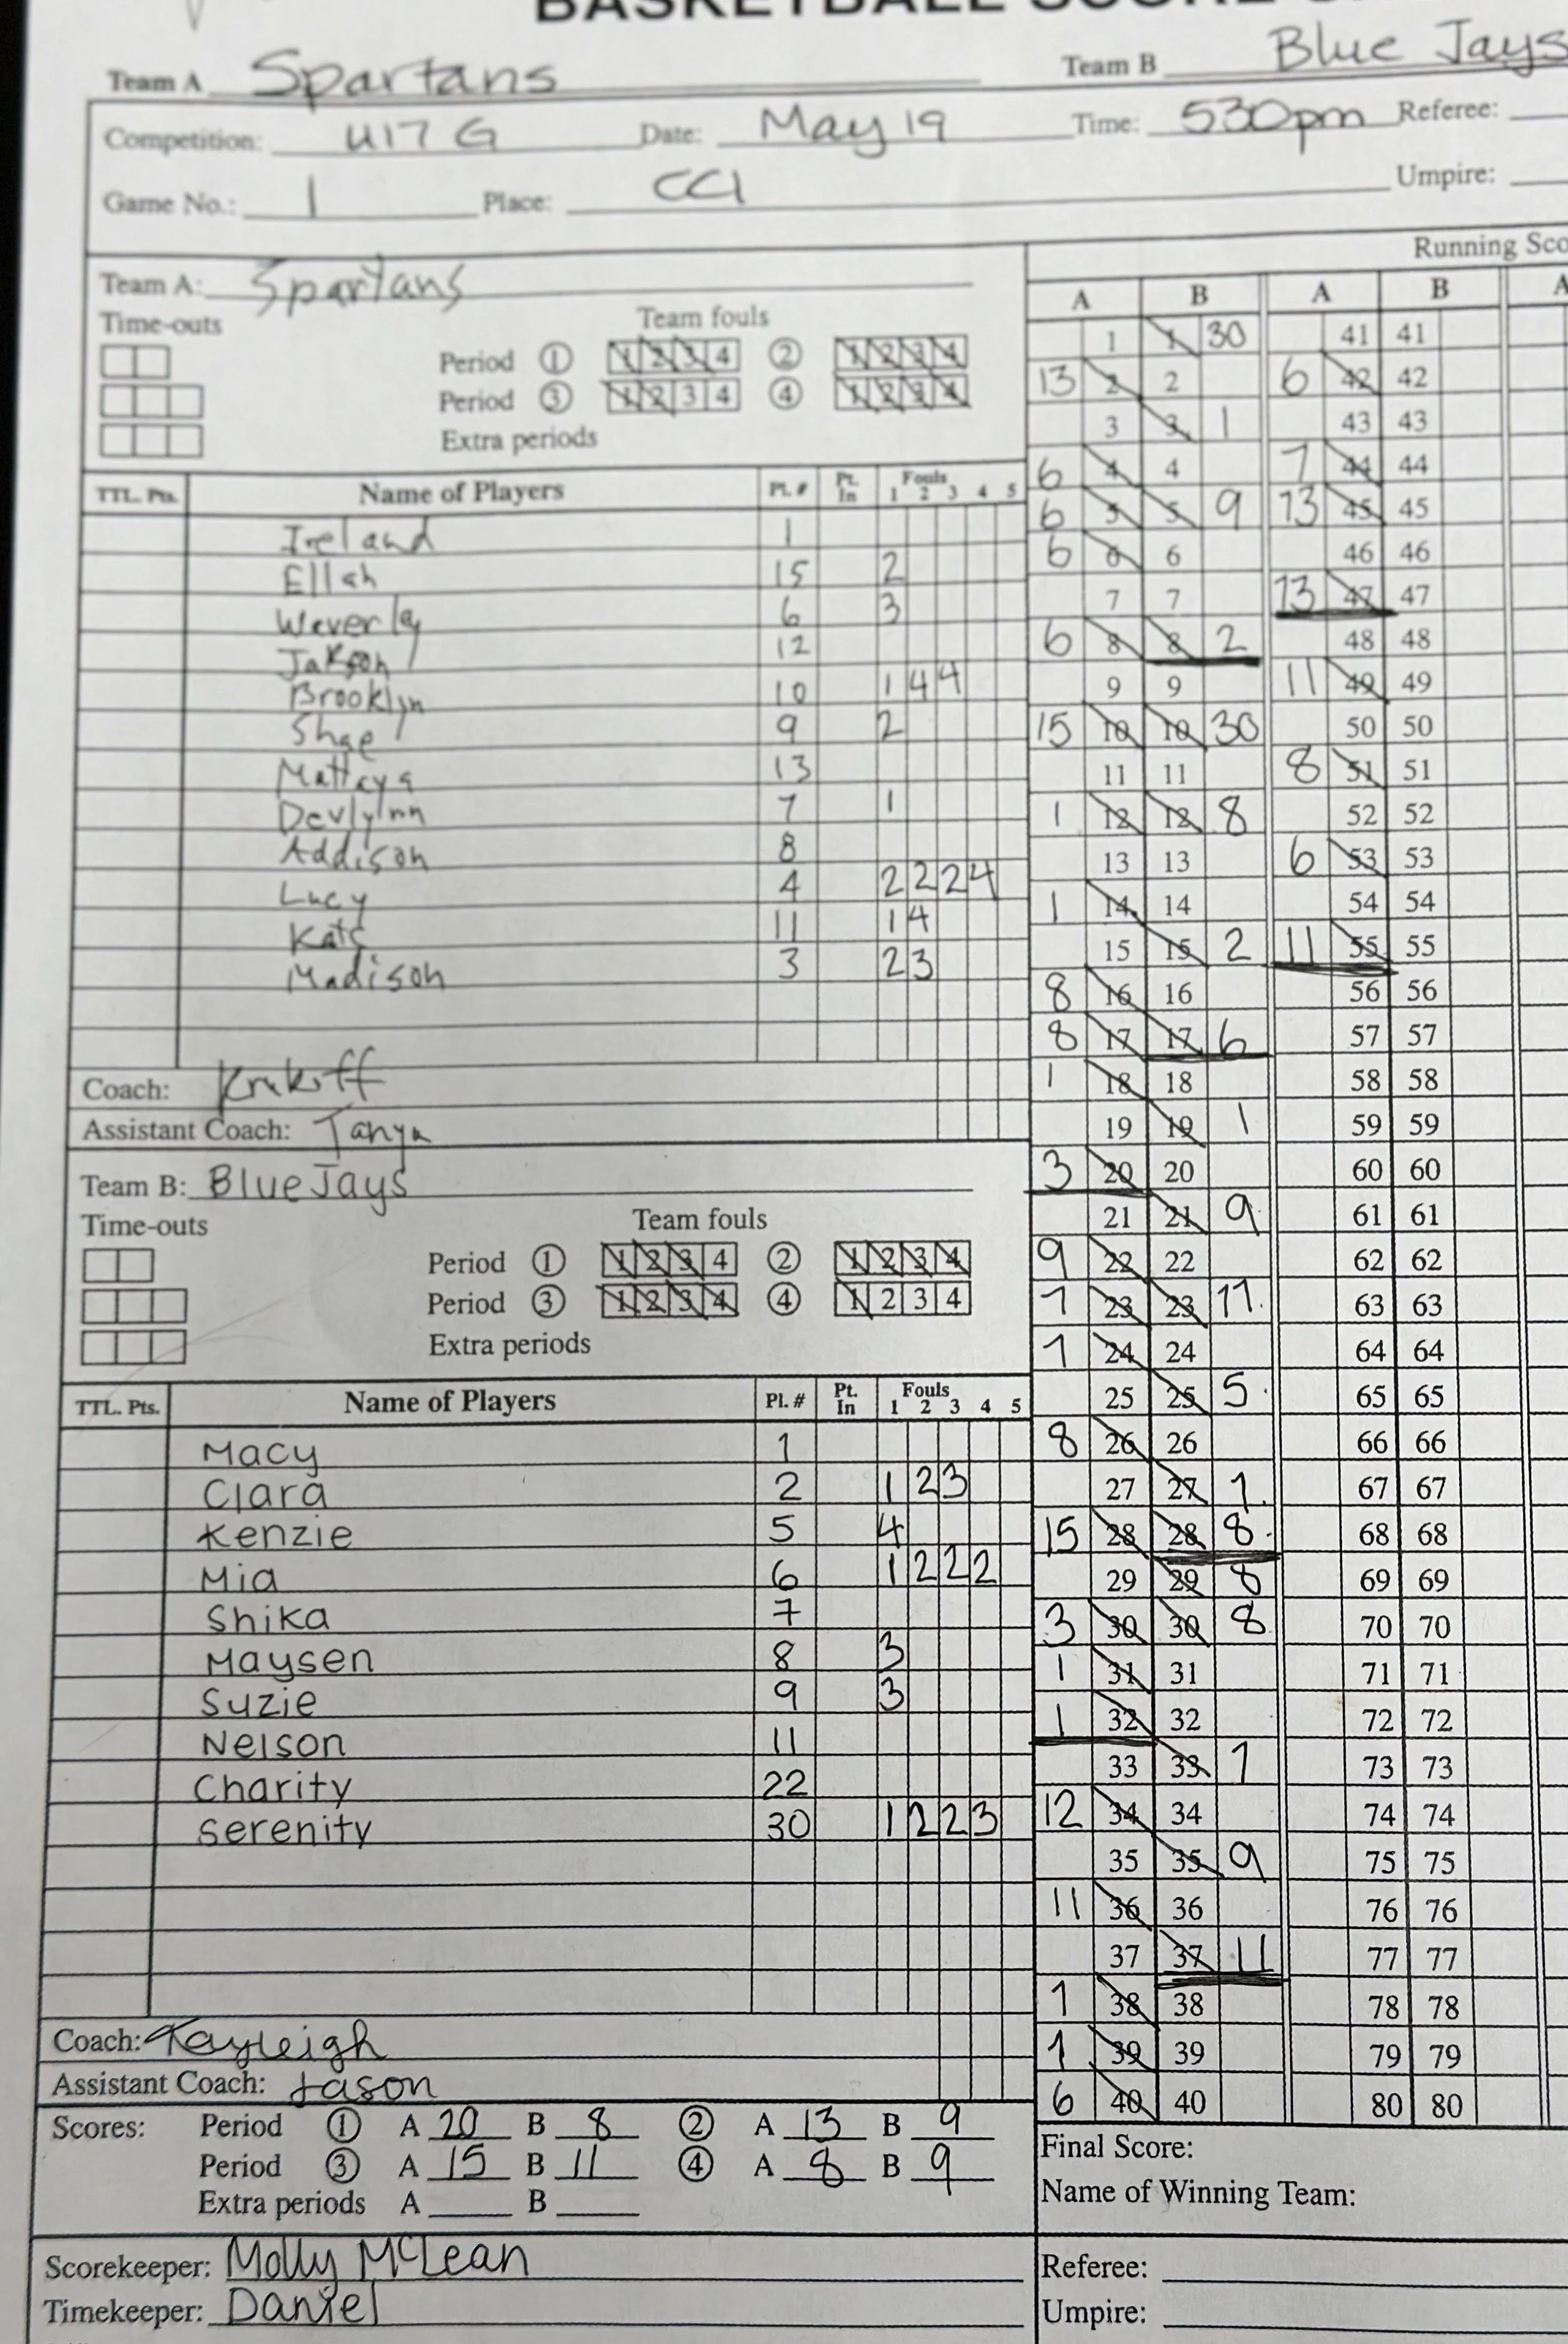 Team A Spartans Team B Blue Jays
Competition: U17 G Date: May 19 Time: 530pm Referee:
Game No.: 1 Place: CCI Umpire:
Team A: Spartans
Time-outs Team fouls
Period ① 1 2 3 4 ② 1 2 3 4
Period ③ 1 2 3 4 ④ 1 2 3 4
Extra periods
TTL. Pts. Name of Players Pl. # Pt. In Fouls 1 2 3 4 5
Ireland 1
Ellah 15 2
Waverley 6 3
12
Brooklyn 10 1 4 4
Shae 9 2
Mattaya 13
Devlynn 7 1
Addison 8
Lucy 4 2 2 2 4
Kate 11 1 4
Madison 3 2 3
Coach: Krukoff
Assistant Coach: Tanya
Team B: Blue Jays
Time-outs Team fouls
Period ① 1 2 3 4 ② 1 2 3 4
Period ③ 1 2 3 4 ④ 1 2 3 4
Extra periods
TTL. Pts. Name of Players Pl. # Pt. In Fouls 1 2 3 4 5
Macy 1
Clara 2 1 2 3
Kenzie 5 4
Mia 6 1 2 2 2
Shika 7
Maysen 8 3
Suzie 9 3
Nelson 11
Charity 22
Serenity 30 1 2 2 3
Coach: Kayleigh
Assistant Coach: Jason
Scores: Period ① A 20 B 8 ② A 13 B 9
Period ③ A 15 B 11 ④ A 8 B 9
Extra periods A B
Scorekeeper: Molly McLean
Timekeeper: Daniel
Running
A B A B A
1 1 30 41 41
13 2 2 6 42 42
3 3 1 43 43
6 4 4 7 44 44
6 5 5 9 13 45 45
6 6 6 46 46
7 7 13 47 47
6 8 8 2 48 48
9 9 11 49 49
15 10 10 30 50 50
11 11 8 51 51
1 12 12 8 52 52
13 13 6 53 53
1 14 14 54 54
15 15 2 11 55 55
8 16 16 56 56
8 17 17 6 57 57
1 18 18 58 58
19 19 1 59 59
3 20 20 60 60
21 21 9 61 61
9 22 22 62 62
7 23 23 11 63 63
7 24 24 64 64
25 25 5 65 65
8 26 26 66 66
27 27 1 67 67
15 28 28 8 68 68
29 29 8 69 69
3 30 30 8 70 70
1 31 31 71 71
1 32 32 72 72
33 33 1 73 73
12 34 34 74 74
35 35 9 75 75
11 36 36 76 76
37 37 11 77 77
1 38 38 78 78
1 39 39 79 79
6 40 40 80 80
Final Score:
Name of Winning Team:
Referee:
Umpire: